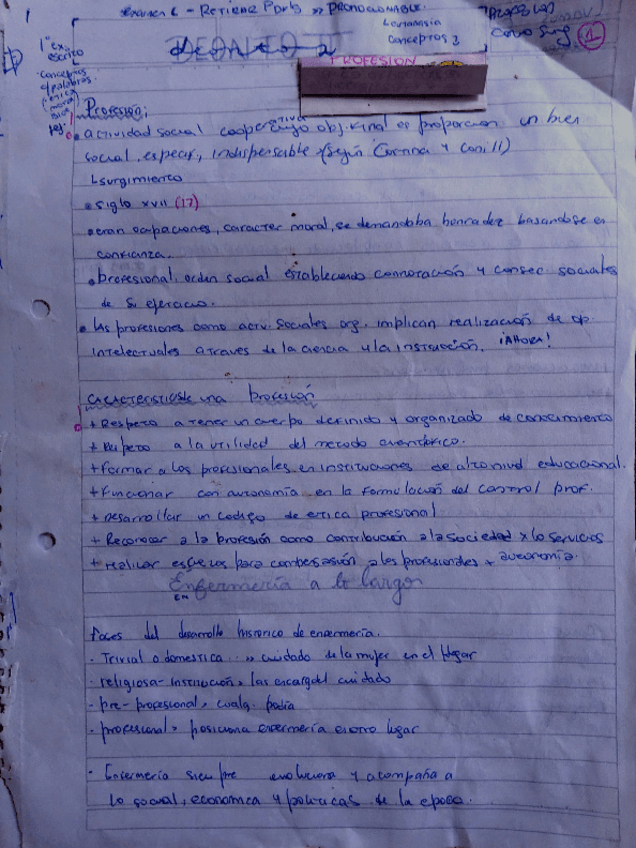 1
PROMOCIONABLE.
Conceptos 2
1
1° ex
escrito
conceptos
PROFESIÓN
Profesión;
• actividad social cooperativa cuyo obj. final es proporcion un bien
social, especif, indispensable (según Cortina y Conill)
↳surgimiento
• siglo XVII (17)
• eran ocupaciones, caracter moral, se demandaba honradez basandose en
confianza.
• profesional, orden social estableciendo connotación y consec. sociales
de su ejercicio.
• las profesiones como activ. sociales org. implican realización de op.
intelectuales a traves de la ciencia y la instrucción. ¡AHORA!
características de una profesión
+ Respeto a tener un cuerpo definido y organizado de conocimiento
+ Respeto a la utilidad del metodo cientifico.
+ formar a los profesionales en instituciones de alto nivel educacional.
+ Funcionar con autonomía en la formulación del control prof.
+ Desarrollar un codigo de etica profesional
+ Reconocer a la profesión como contribución a la sociedad x lo servicios
+ realizar esfuerzos para compensación a los profesionales + autonomía.
Enfermería a lo largo
EN
faces del desarrollo historico de enfermería.
· Trivial o domestica » cuidado de la mujer en el Hogar
· religiosa - Institución > las encarg del cuidado
· pre-profesional > cualq. podia
· profesional > posiciona enfermería en otro lugar
· Enfermería siempre evoluciona y acompaña a
lo social, economica y politicas de la epoca.